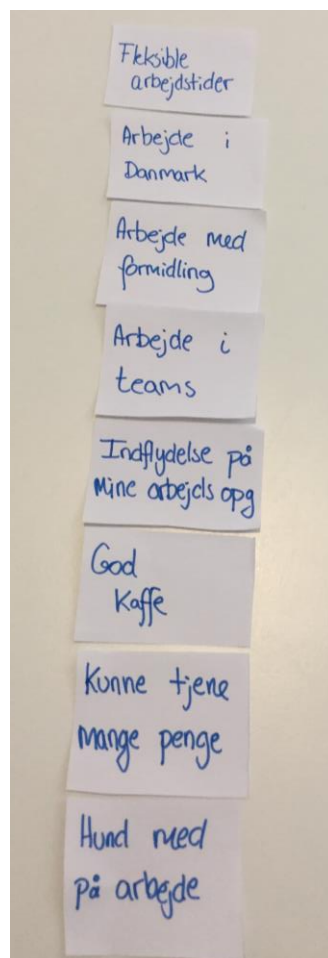 Fleksible
arbejdstider
Arbejde i
Danmark
Arbejde med
formidling
Arbejde i
teams
Indflydelse på
Mine arbejds opg
God
Kaffe
Kunne tjene
Mange penge
Hund med
på arbejde